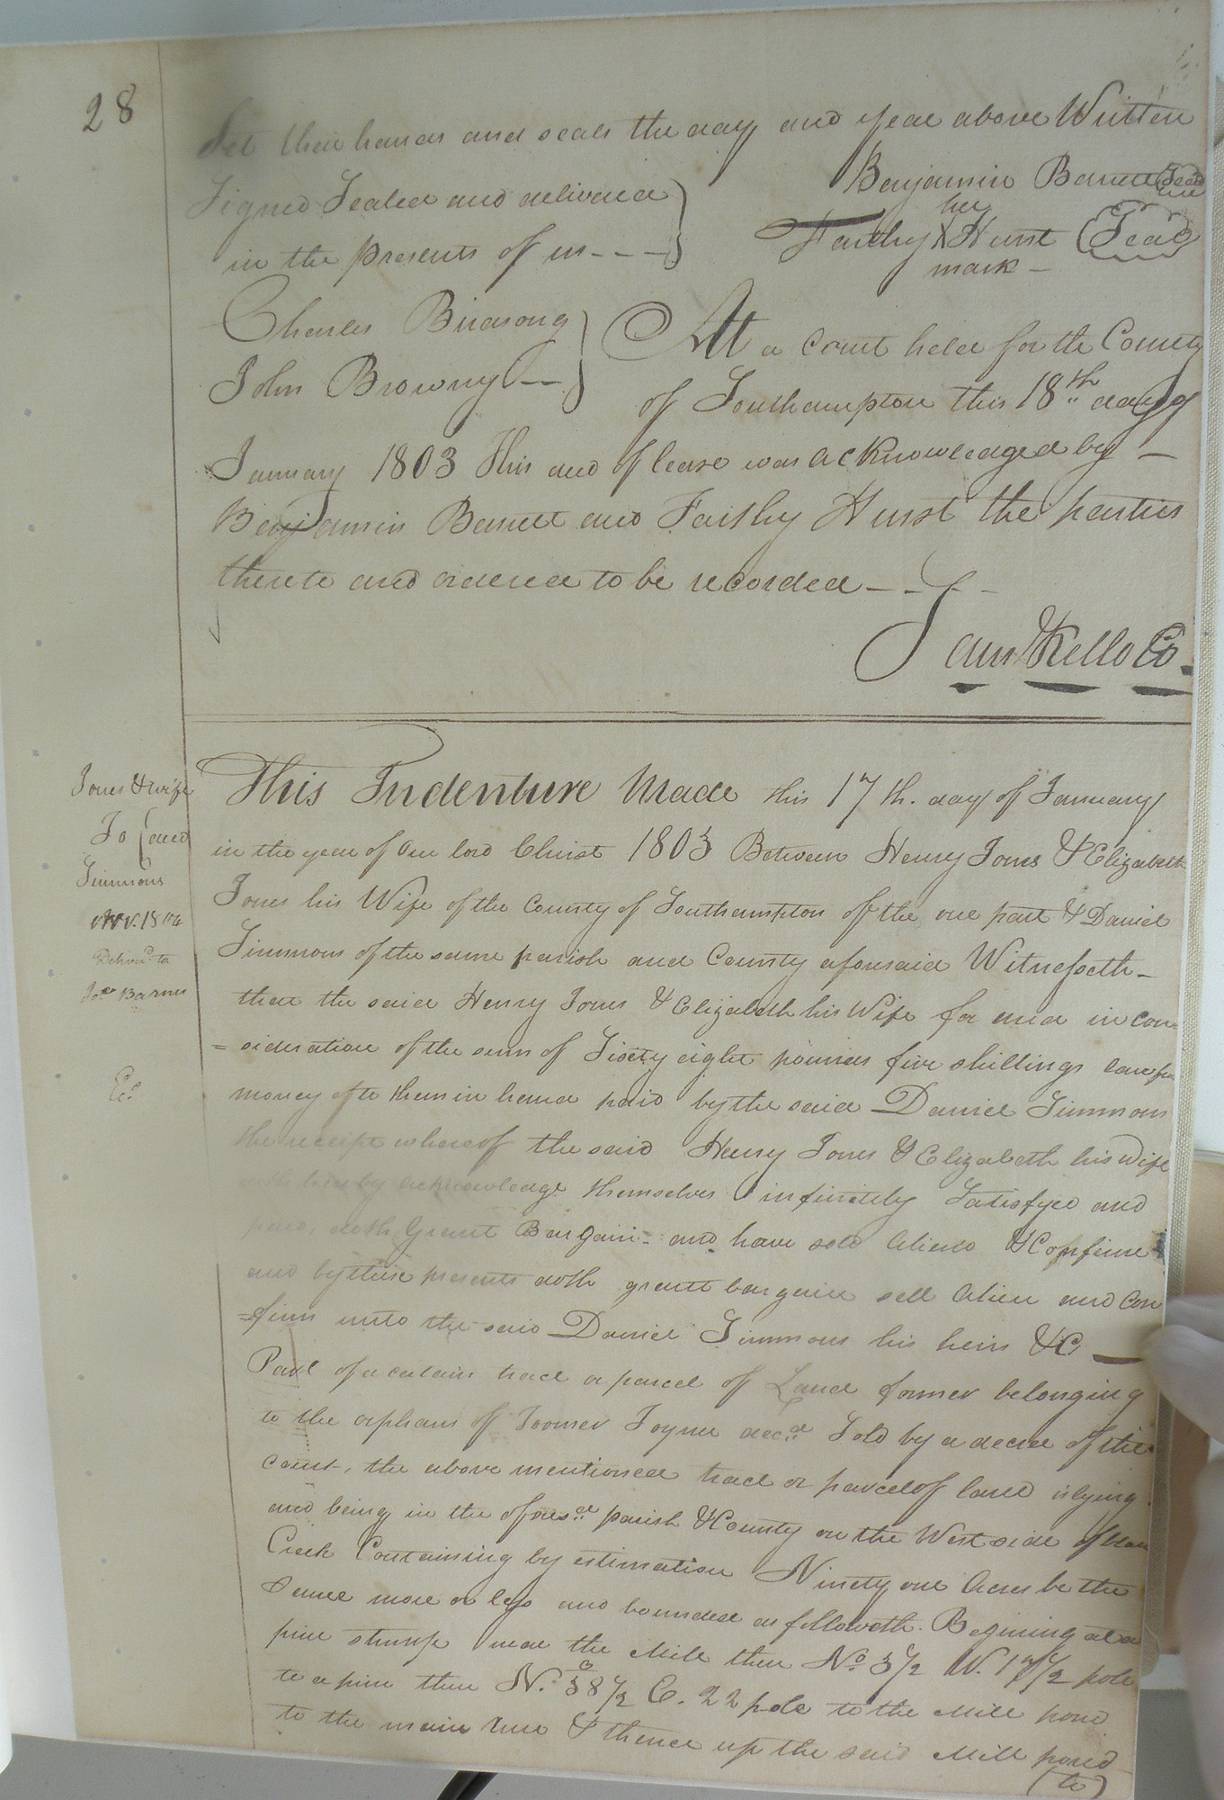 28
Set their hands and seals the day and year above Written
Signed Sealed and delivered
in the presents of us - - -
Benjamin Barrett Seal
her
Faithy X Hurst Seal
mark
Charles Birdsong
John Browny
At a Court held for the County
of Southampton this 18th day of
January 1803 This and of lease was acknowledged by
Benjamin Barrett and Faithy Hurst the parties
thereto and ordered to be recorded - - -
Saml Kello Co
Jones & wife
To Deed
Simmons
Delivd to
Jos Barnes
Ed
This Indenture Made this 17th. day of January
in the year of Our lord Christ 1803 Between Henry Jones & Elizabeth
Jones his Wife of the County of Southampton of the one part & Daniel
Simmons of the same parish and County aforesaid Witnesseth -
that the said Henry Jones & Elizabeth his Wife for and in con
= sideration of the sum of Sixty eight pounds five shillings
money to them in hand paid by the said Daniel Simmons
the receipt whereof the said Henry Jones & Elizabeth his Wife
doth hereby acknowledge themselves infinitely Satisfyed and
paid, doth Grant Bargain and have sold Aliend & Confirm
and by these presents doth grant bargain sell Alien and Con
=firm unto the said Daniel Simmons his heirs &C
Part of a certain tract or parcel of Land former belonging
to the orphans of Toomer Joyner decd. Sold by a decree of the
Court, the above mentioned tract or parcel of land lying
and being in the aforesd. parish & County on the West side of
Creek Containing by estimation Ninety one Acres be the
same more or less and bounded as followeth. Begining at a
pine stump near the Mill then No. 3½ W. 17½ pole
to a pine then N. 38½ E. 22 pole to the Mill pond
to the main run & thence up the said Mill pond
(to)